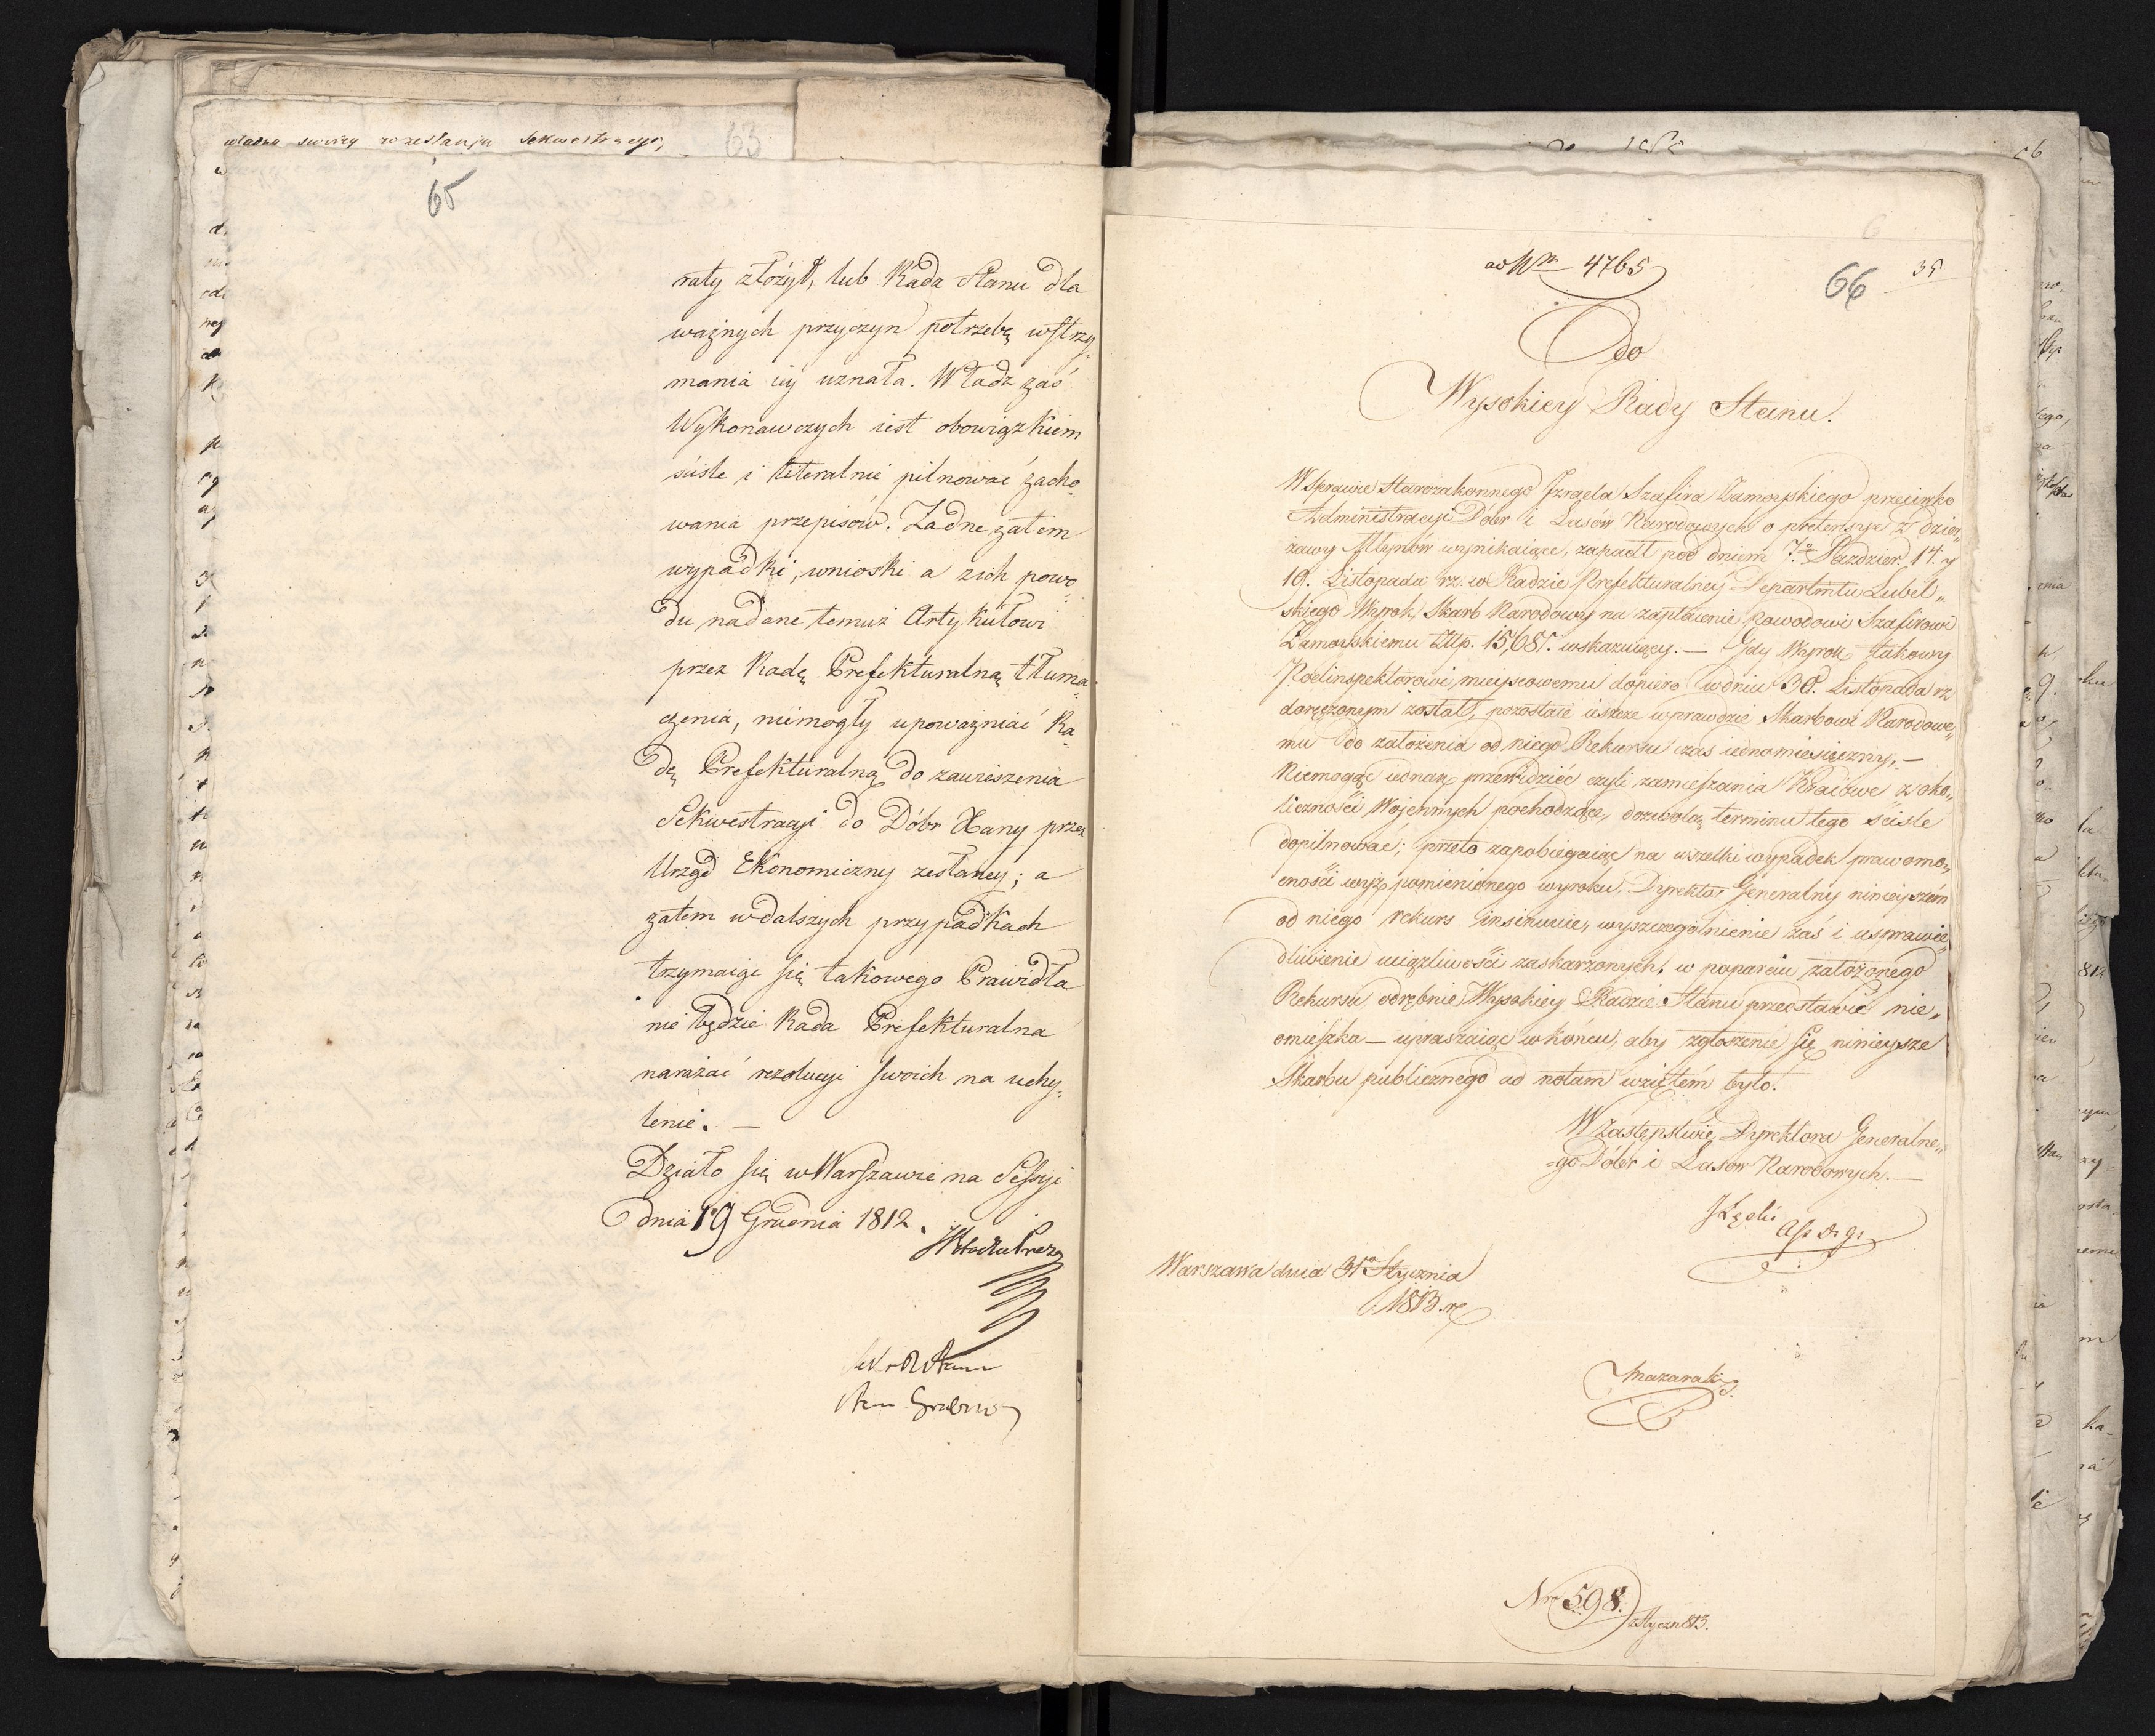 63
65
raty złożył, lub Rada Stanu dla
ważnych przyczyn potrzebę wstrzy„
mania iey uznała. Władz zaś
Wykonawczych iest obowiązkiem
ściśle i literalnie pilnować zacho„
wania przepisów. Żadne zatem
wypadki, wnioski a zich powo„
du nadane temuż Artykułowi
przez Radę Prefekturalną tłuma„
czenia, niemogły upoważniać Ra„
dę Prefekturalną do zawieszenia
Sekwestracyi do Dóbr Hany przez
Urząd Ekonomiczny zesłaney; a
zatem wdalszych przypadkach
trzymaiąc się takowego Prawidła
nie będzie Rada Prefekturalna
narażać rezolucyi swoich na uchy„
lenie. —
Działo się w Warszawie na Sessyi
dnia 19 Grudnia 1812.
66
35
ad Nrm 4765
Do
Wysokiey Rady Stanu.
W Sprawie Starozakonnego Izraela Szafira Zamoyskiego przeciwko
Administracyi Dóbr i Lasów Narodowych o pretensye z dzier„
żawy Młynów wynikaiące, zapadł pod dniem 7o Paździer. 14. y
19. Listopada rz. w Radzie Prefekturalney Departmtu Lubel„
skiego Wyrok, Skarb Narodowy na zapłacenie Powodowi Szafirowi
Zamoyskiemu Złłp. 15,685. wskazuiący. — Gdy Wyrok takowy
Podinspektorowi, mieyscowemu dopiero w dniu 30. Listopada rz
doręczonym został, pozostaie ieszcze wprawdzie Skarbowi Narodowe„
mu do założenia od niego Rekursu czas iednomiesięczny, —
Niemogąc iednak przewidzieć czyli zamieszania Kraiowe z oko„
liczności Woiennych pochodzące, dozwolą terminu tego ściśle
dopilnować; przeto zapobiegaiąc na wszelki wypadek prawomo„
cności wyż pomienionego wyroku, Dyrektor Generalny ninieyszém
od niego rekurs insinuuie, wyszczegolnienie zaś i usprawie„
dliwienie uciążliwości zaskarżonych, w poparciu założonego
Rekursu odrębnie Wysokiey Radzie Stanu przedstawić nie„
omieszka — upraszaiąc w końcu, aby zgłoszenie się ninieysze
Skarbu publicznego ad notam wziętém było.
W Zastępstwie Dyrektora Generalne„
=go Dóbr i Lasow Narodowych. —
Warszawa dnia 31a Stycznia
1813. r
Mazaraki
Nro 598.
z Styczn 813.